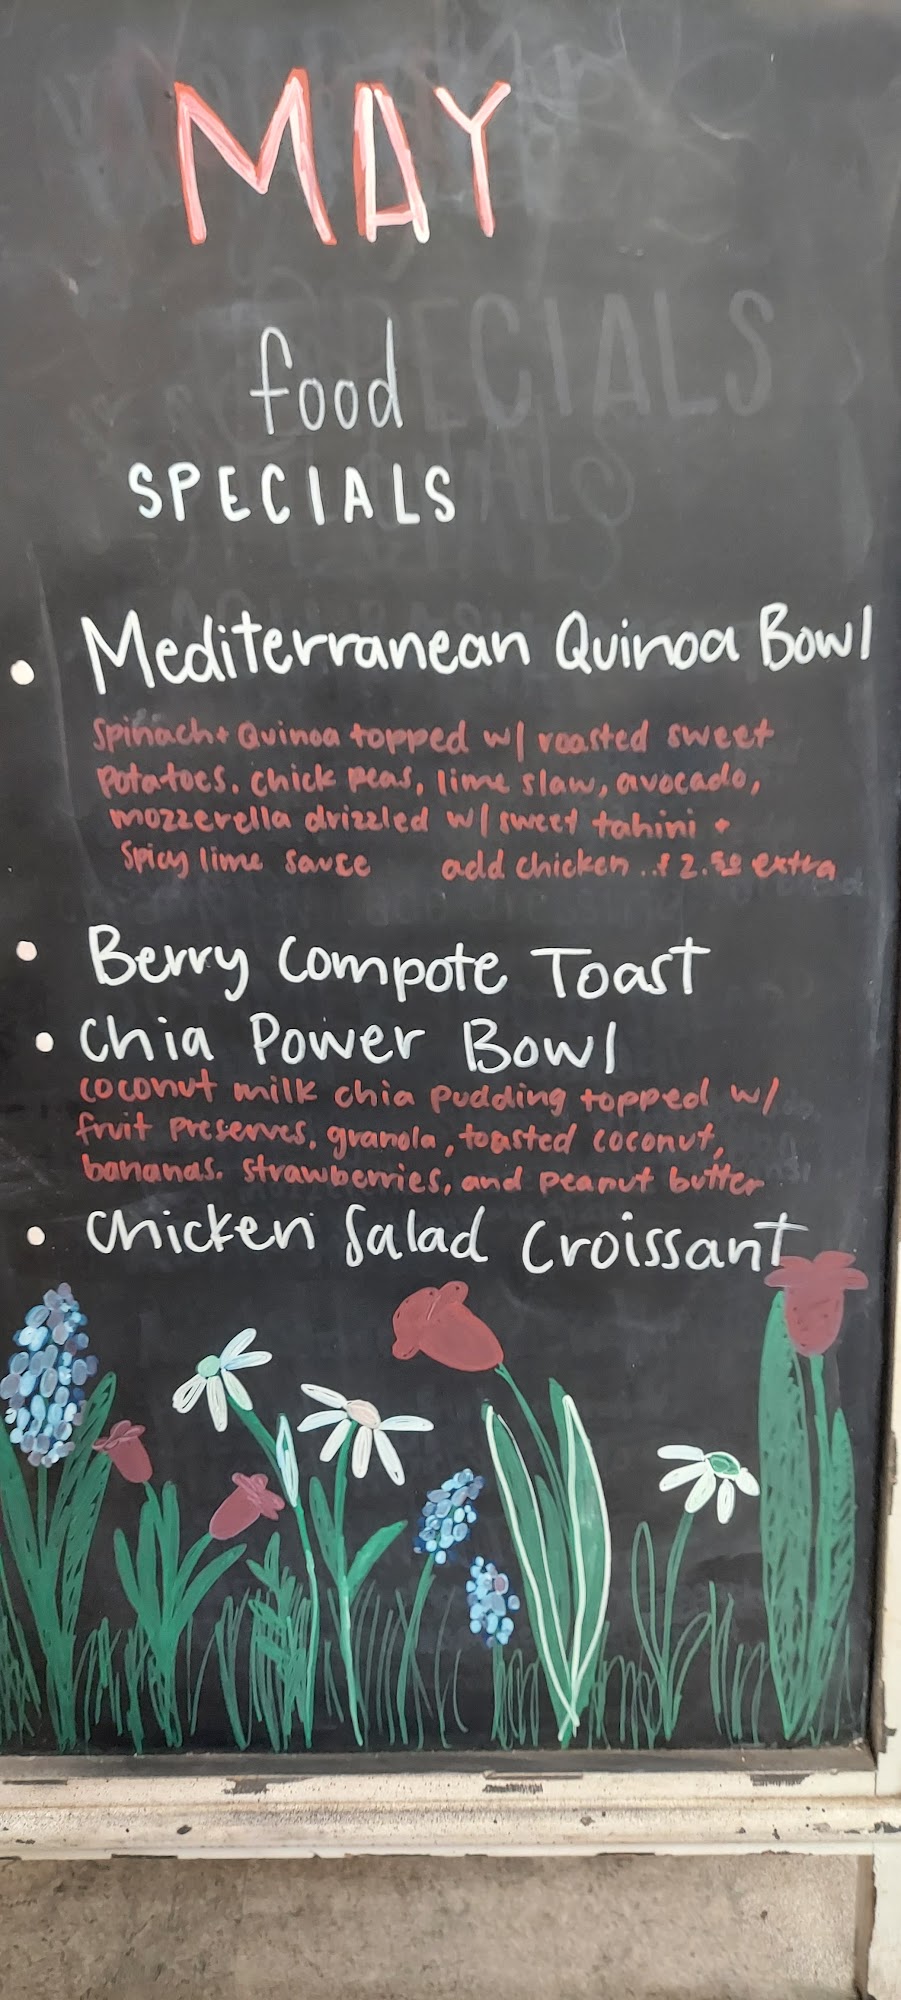 MAY
food
SPECIALS
• Mediterranean Quinoa Bowl
Spinach + Quinoa topped w/ roasted sweet
potatoes, chick peas, lime slaw, avocado,
mozzerella drizzled w/ sweet tahini +
spicy lime sauce add chicken..$2.50 extra
• Berry Compote Toast
• Chia Power Bowl
coconut milk chia pudding topped w/
fruit preserves, granola, toasted coconut,
bananas, strawberries, and peanut butter
• Chicken Salad Croissant